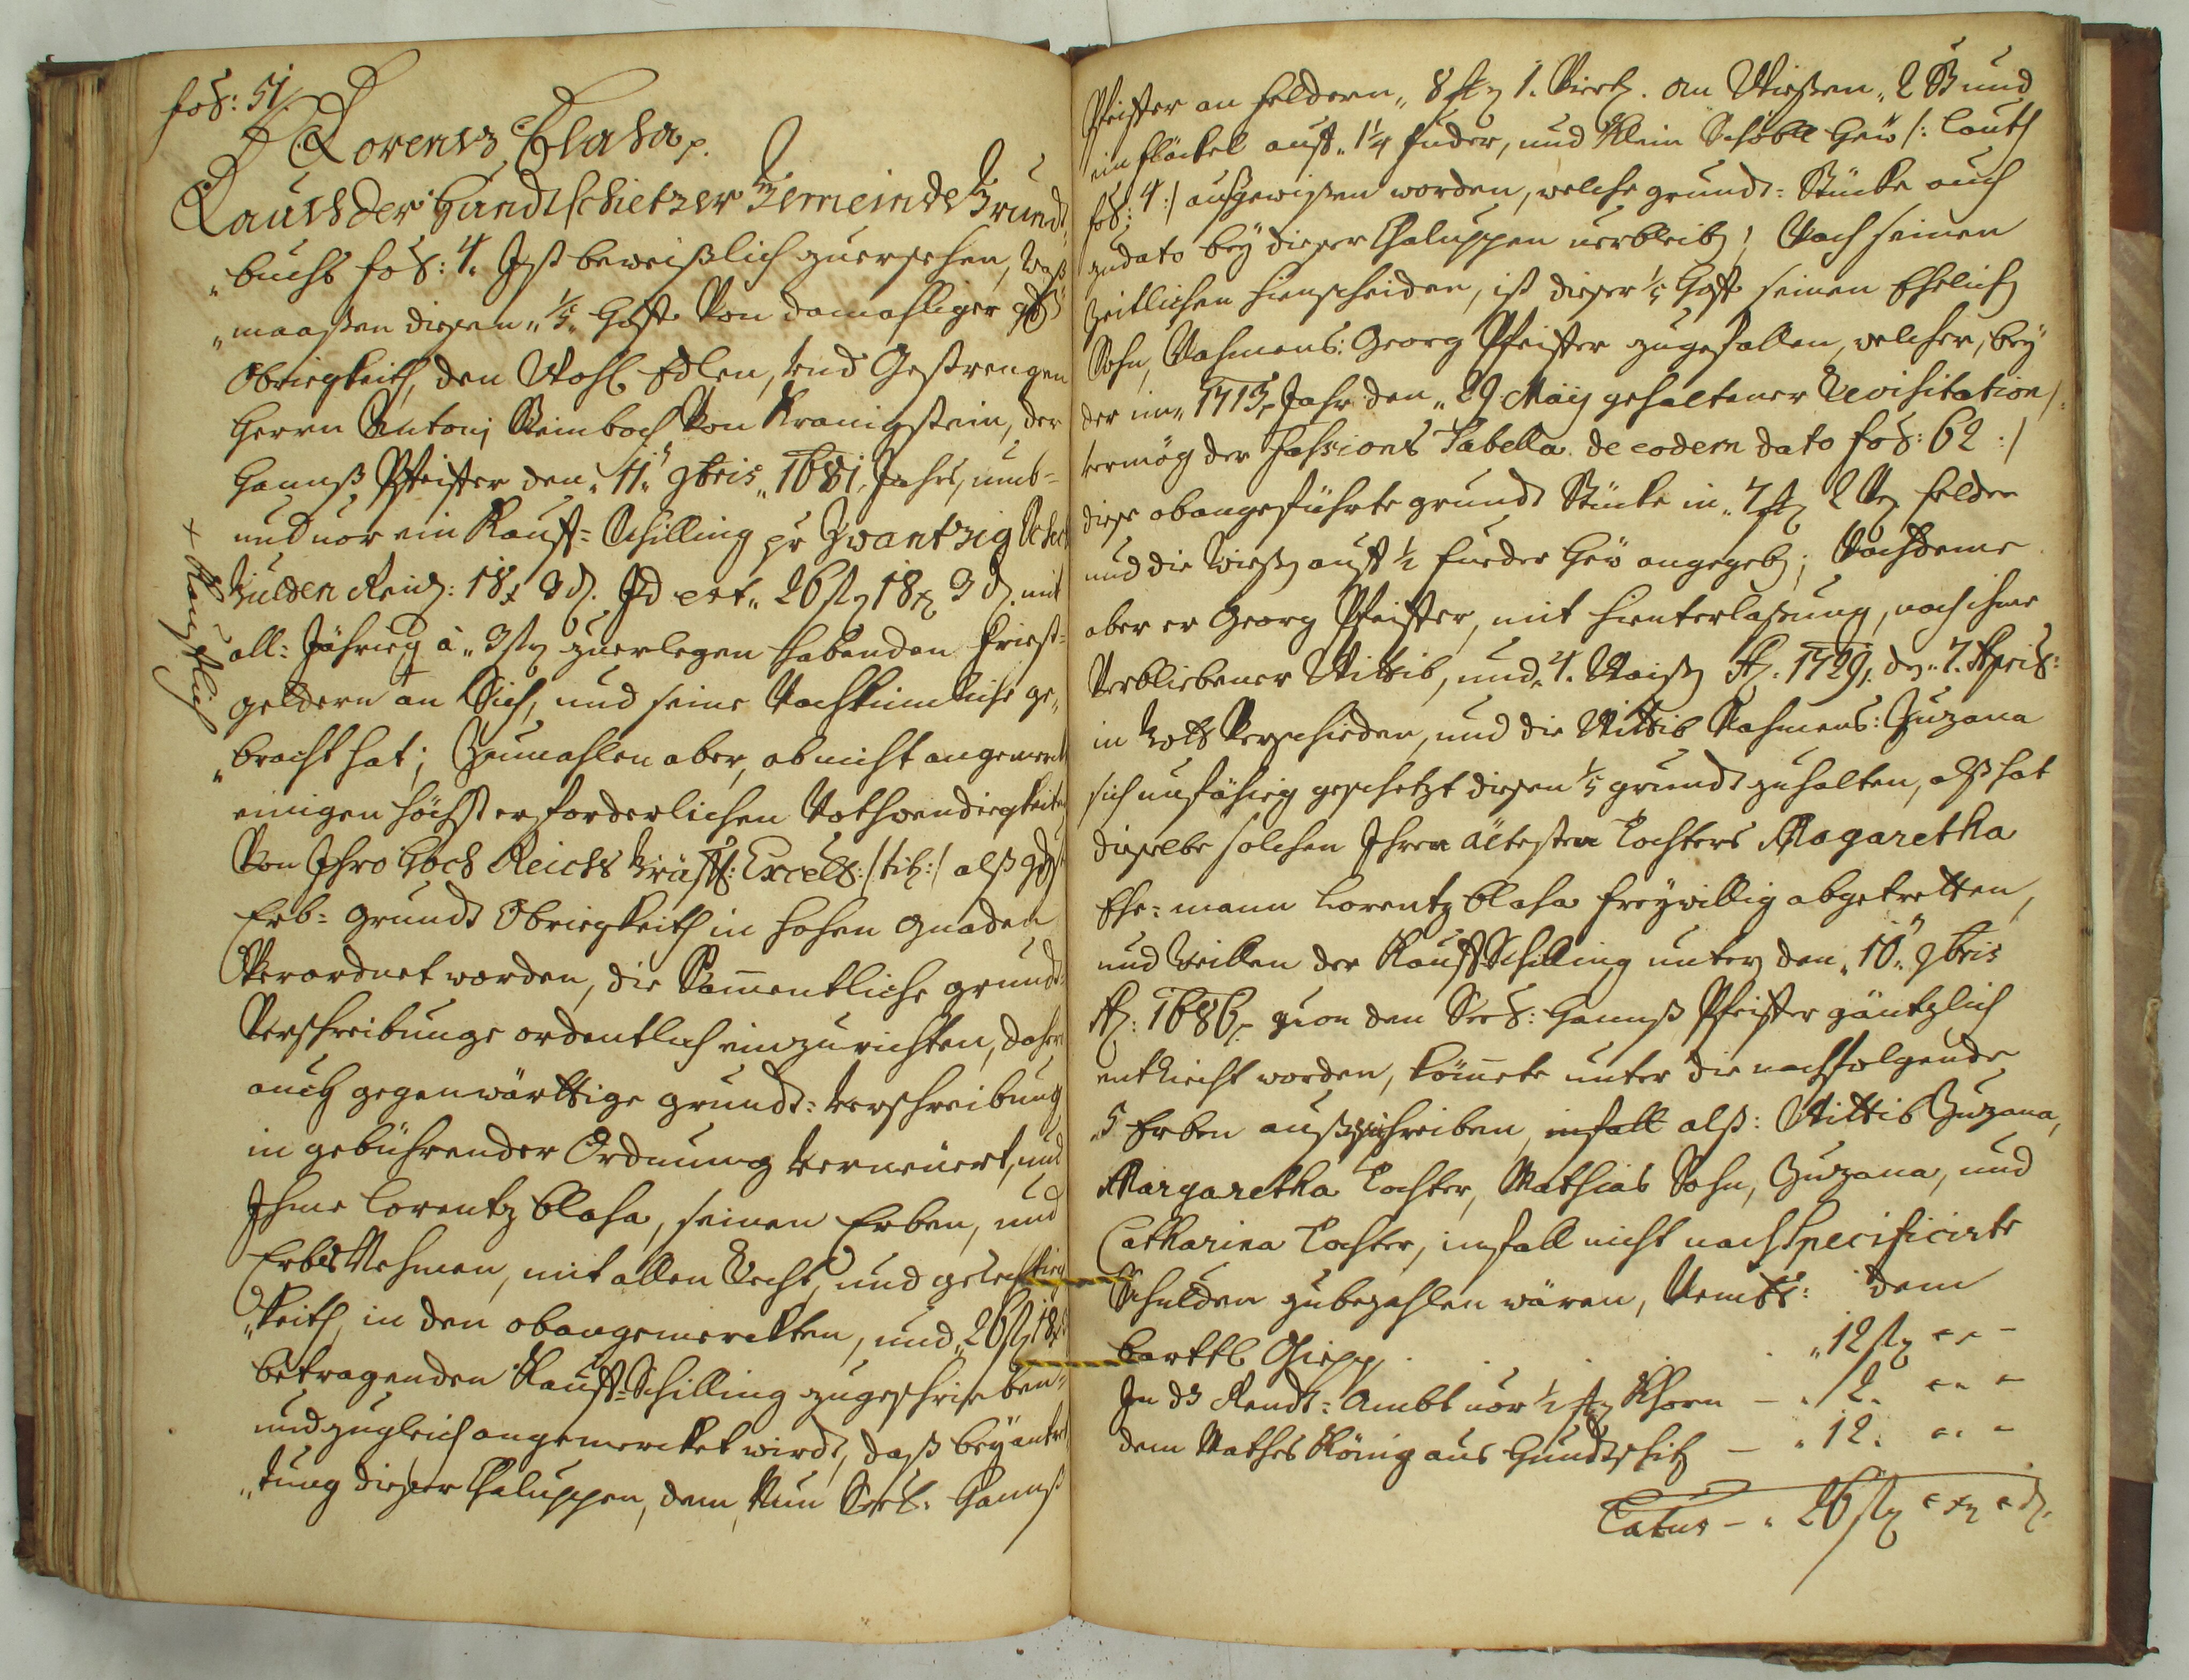 fol: 51
Lorentz Blaha p.
Lauth der Hundtschietzer Gemeinde Grundt„
„buchs fol: 4. Ist beweißlich zuersehen, was
„maaßen diesen „⅕„ Hoff von damahliger
Obriegkeith, den Wohl Edlen, und Gestrengen
Herrn Antonj Steinbach von Kranigstein, der
Hannß Pfeiffer den „11„ 9bris „1681„ Jahrs, umb=
und vor ein Kauff=Schilling pr Zwantzig Sechs
Gulden Rein: 18 x 3 d. Id est „26 f 18 x 3 d. mit
all: Jährieg à „3 f zuerlegen habenden Friest=
geldern + an Sich, und seine Nachkümlinge ge„
+ Kauflich
„bracht hat; Zumahlen aber, ob nicht angemerckt
einigen höchst erforderlichen Nothwendiegkeiten
Von Ihro Hoch Reichs Gräffl: Excell: /:tit:/ alß
Erb= Grundt Obriegkeith in hohen Gnaden
Verordnet worden, die Sammentliche Grundt=
Verschreibunge ordentlich einzurichten, daher
auch gegenwärttige Grundt=Verschreibung
in gebührender Ordnung verneüert, und
Ihme Lorentz Blaha, seinen Erben, und
Erbs Nehmen, mit allen Recht, und gerechtieg
„keith, in den obangemerckten, und „26 f 18 x
betragenden Kauff=Schilling zugeschrieben=
und zugleich angemercket wirdt, daß bey antret
„tung dieser Chaluppen, dem Nun Seel: Hannß
Pfeiffer an Feldern „8 1. Viertl. an Wießen „2 und
ein Fläckel auff „1¼ Fuder, und Klein Schöbl Heü /: lauth
fol: 4:/ außgewißen worden, welche Grundt=Stücke auch
zudato bey dieser Chaluppen verbleib; Nach seinen
Zeitlichen Hienscheiden, ist dieser ⅕ Hoff seinen Ehelich
Sohn, Nahmens: Georg Pfeiffer zugefallen, welcher, bey
der im „1713„ Jahr den „29 Maij gehaltener Revisitation /:
vermög der Fassions Tabella de eodem dato fol: 62 :/
diese obangeführte Grundt Stücke in „7 2 Felder
und die Wieß auff ½ Fueder Heü angegeb; Nachdeme
aber er Georg Pfeiffer, mit Hienterlaßung, nach ihme
Verbliebener Wittib, und „4. Waiß A. 1729. d. 7. April:
in Gott Verschieden, und die Wittib Nahmens: Zuzana
sich unfähieg geschetzt diesen ⅕ Grundt zuhalten, alß hat
dieselbe solchen Ihren ältesten Tochters Magaretha
Ehe=Mann Lorentz Blaha freywillig abgetretten,
und weillen der Kauff Schilling unterm den „10„ 9bris
A: 1686 von den Seel: Hannß Pfeiffer gäntzlich
entricht worden, kömete unter die nachfolgende
„5 Erben außzuschreiben, infall alß: Wittib Zuzana,
Margaretha Tochter, Mathias Sohn, Zuzana, und
Catharina Tochter, infall nicht nach Specificirte
Schulden zubezahlen wären, Nembl: dem
Barttl . . . „12 f „ „ –
In das Rendt=Ambt vor ½ Khorn – „ 2. „ „ –
dem Mathes König aus Hundtschitz – „ 12. „ „ –
Latus – „ 26 f „ x „ d.